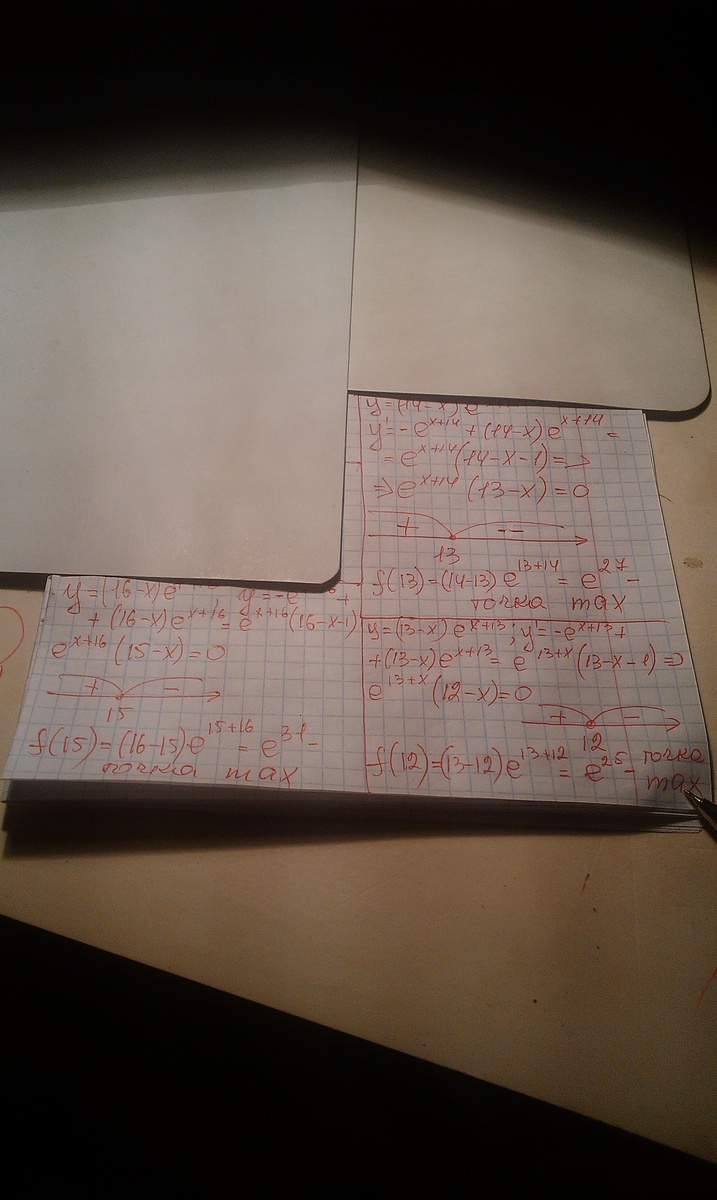 y=(14-x)e
y'=-e^{x+14}+(14-x)e^{x+14}=
=e^{x+14}(14-x-1)=>
=>e^{x+14}(13-x)=0
+ --
13
f(13)=(14-13)e^{13+14}=e^{27}-
точка max
y=(16-x)e y'=-e +
+(16-x)e^{x+16}=e^{x+16}(16-x-1)
e^{x+16}(15-x)=0
+ -
15
f(15)=(16-15)e^{15+16}=e^{31}-
точка max
y=(13-x)e^{x+13}; y'=-e^{x+13}+
+(13-x)e^{x+13}=e^{13+x}(13-x-1)=>
e^{13+x}(12-x)=0
+ -
12
f(12)=(13-12)e^{13+12}=e^{25}- точка
max